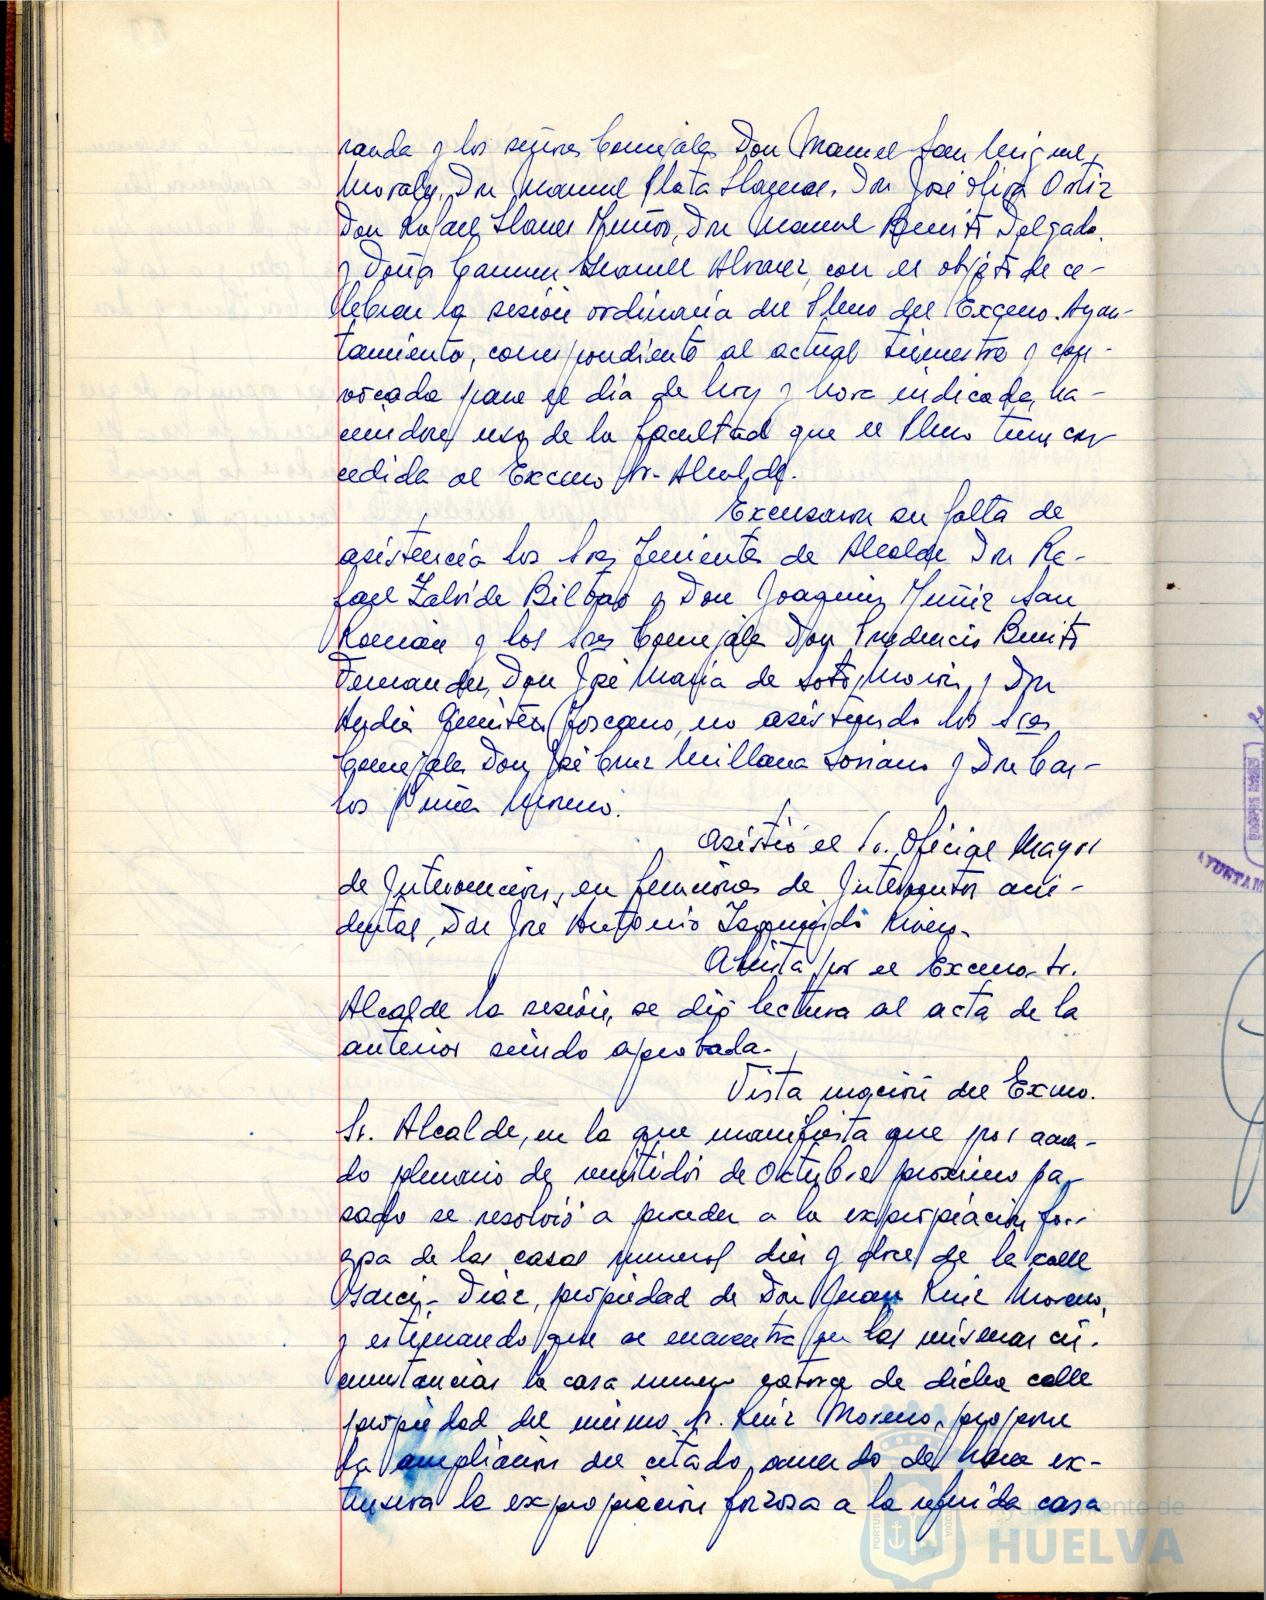 randa y los señores Concejales Don Manuel San Miguel
Morales, Don Manuel Plata Llagunes, Don José Oliva Ortiz
Don Rafael Llanes Muñoz, Don Manuel Benito Delgado
y Doña Carmen Alvarez, con el objeto de ce-
lebrar la sesión ordinaria del Pleno del Excmo. Ayun-
tamiento, correspondiente al actual trimestre y con-
vocada para el día de hoy y hora indicada, ha-
ciendose uso de la facultad que el Pleno tiene con
cedida al Excmo Sr. Alcalde.
Excusaron su falta de
asistencia los Sres Tenientes de Alcalde Don Ra-
fael Zalvide Bilbao y Don Joaquin Muñiz San
Román y los Sres Concejales Don Prudencio Benito
Fernandez, Don José María de Soto Moron, y Don
Toscano, no asistiendo los Sres
Concejales Don José Cruz Millana Soriano y Don Car-
los Moreno.
Asistió el Sr. Oficial Mayor
de Intervencion, en funciones de Interventor acci-
dental, Don José Antonio Izquierdo Rivero.
Abierta por el Excmo. Sr.
Alcalde la sesión, se dió lectura al acta de la
anterior siendo aprobada.
Vista moción del Excmo.
Sr. Alcalde, en la que manifiesta que por acuer-
do plenario de veintidos de Octubre proximo pa-
sado se resolvió a proceder a la expropiacion for-
zosa de las casas numeros diez y doce de la calle
Garci-Diaz, propiedad de Don Juan Ruiz Moreno,
y estimando que se encuentra en las mismas cir-
cunstancias la casa numero catorce de dicha calle
propiedad del mismo Sr. Ruiz Moreno, propone
la ampliacion del citado acuerdo de hacer ex-
tensiva la expropiacion forzosa a la referida casa
Ayuntamiento de
HUELVA
AYUNTAM